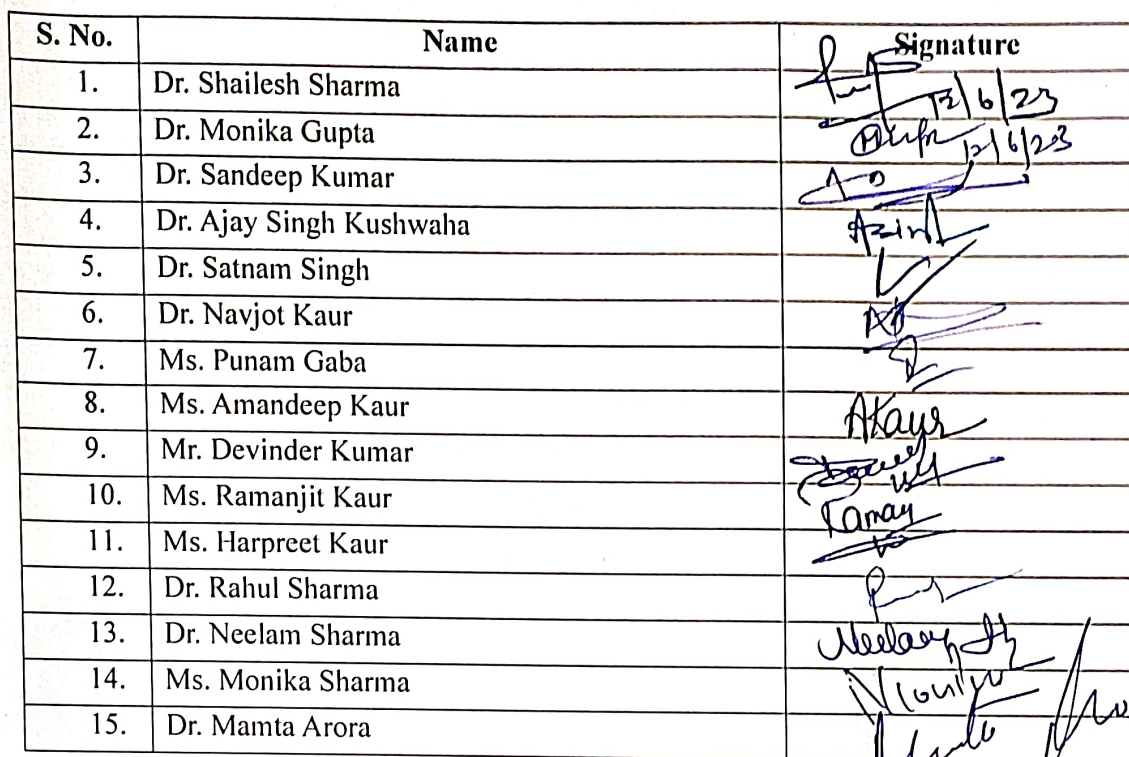 S. No. Name Signature
1. Dr. Shailesh Sharma 12/6/23
2. Dr. Monika Gupta 12/6/23
3. Dr. Sandeep Kumar
4. Dr. Ajay Singh Kushwaha
5. Dr. Satnam Singh
6. Dr. Navjot Kaur
7. Ms. Punam Gaba
8. Ms. Amandeep Kaur AKaur
9. Mr. Devinder Kumar
10. Ms. Ramanjit Kaur
11. Ms. Harpreet Kaur
12. Dr. Rahul Sharma
13. Dr. Neelam Sharma
14. Ms. Monika Sharma
15. Dr. Mamta Arora